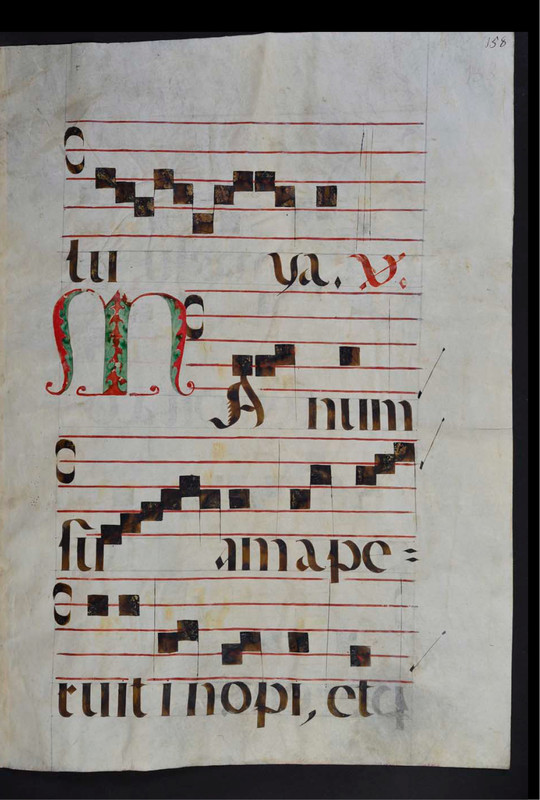 158
tu ya. V.
MAnum
suam ape=
ruit inopi, et